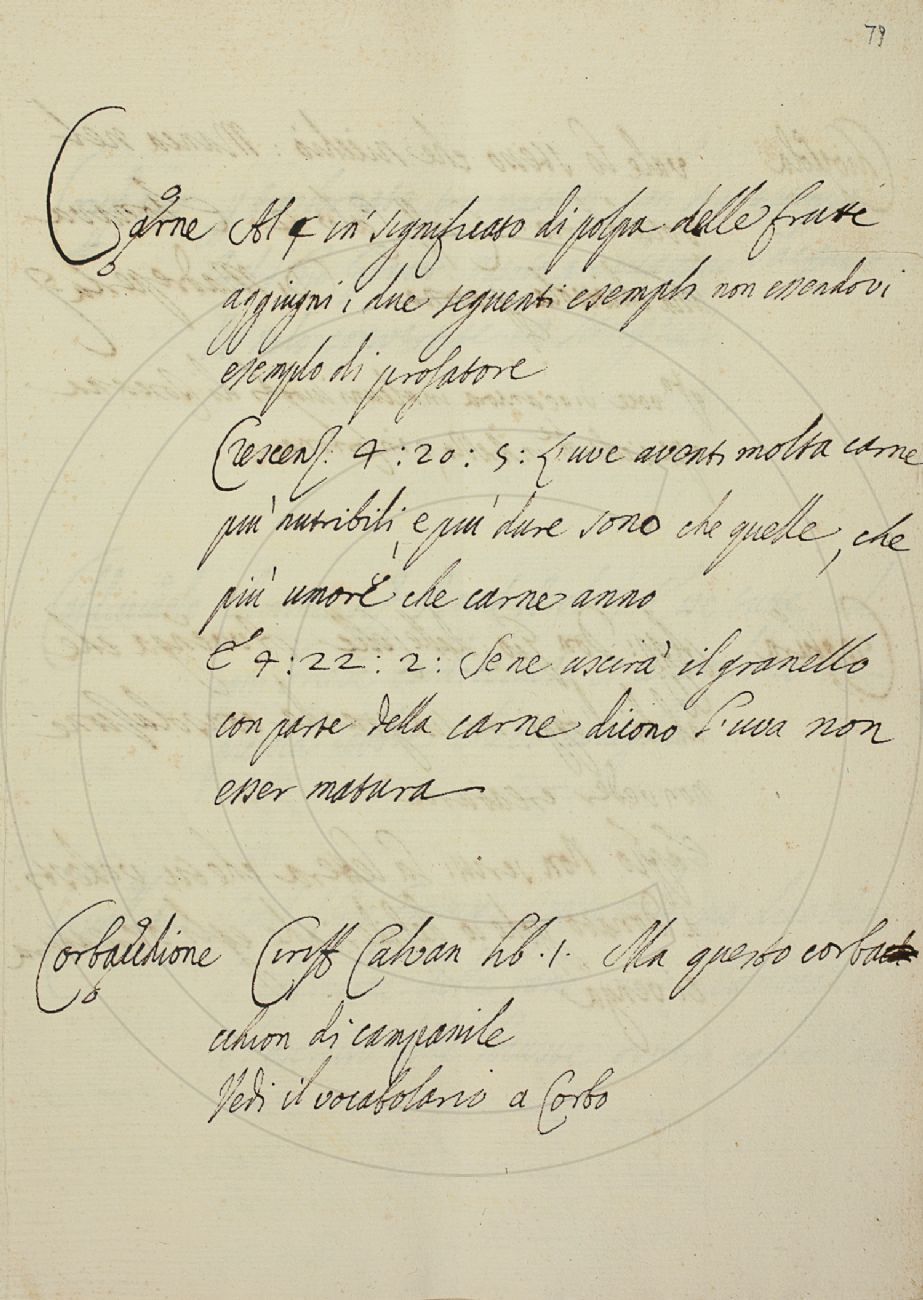 79
Carne Al § in significato di polpa delle frutte
aggiugni i due seguenti esempli non essendovi
esemplo di prosatore
Crescenz: 4:20:5: L'uve aventi molta carne
più nutribili, e più dure sono che quelle, che
più umore che carne anno
E 4:22:2: Se ne uscirà il granello
con parte della carne dicono l'uva non
esser matura
Corbacchione Ciriff Calvan lib. 1. Ma questo corba
cchion di campanile
Vedi il vocabolario a Corbo